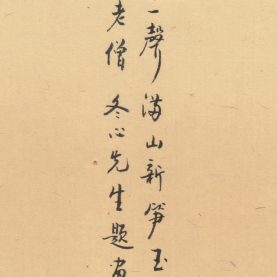 一聲滿山新笋玉
老僧 冬心先生題畫